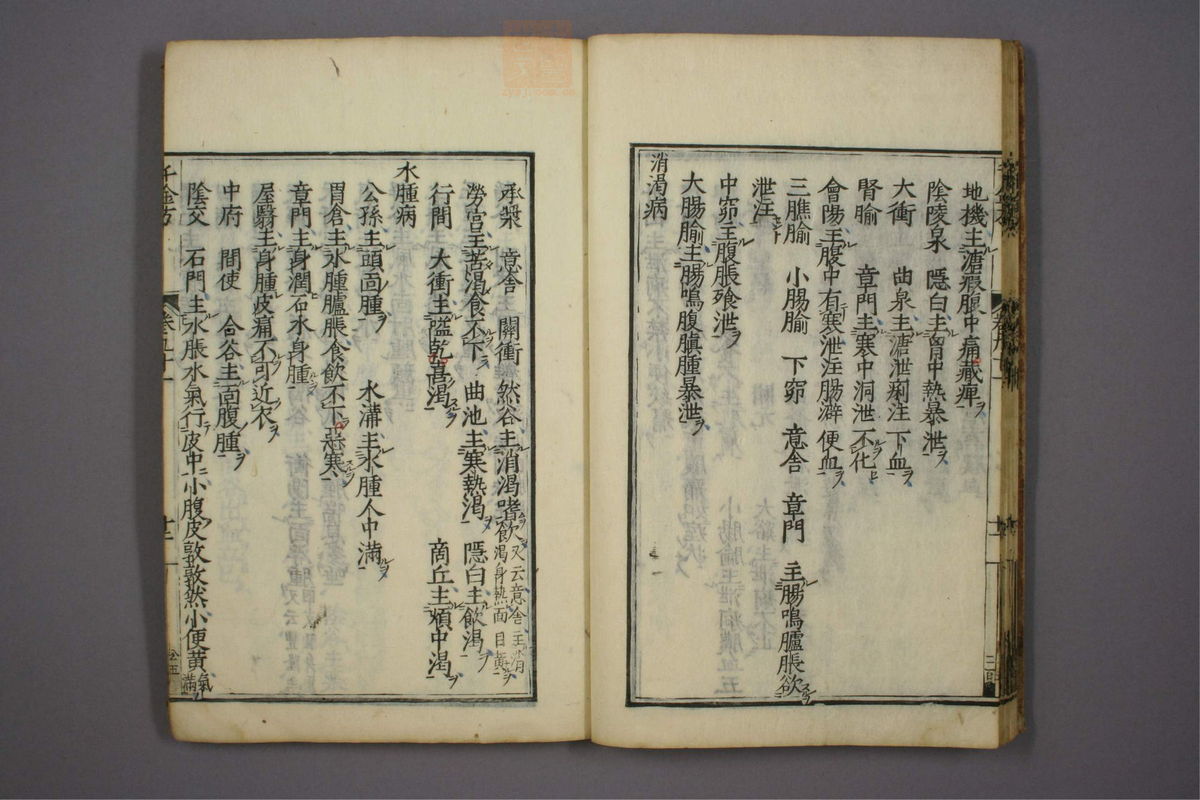 地機主溏瘕腹中痛藏痺
陰陵泉　隱白主胷中熱暴泄
大衝　曲泉主溏泄痢注下血
腎腧　章門主寒中洞泄不化
會陽主腹中有寒泄注腸澼便血
三膲腧　小腸腧　下窌　意舎　章門　主腸鳴臚脹欲
泄注
中窌主腹脹飱泄
大腸腧主腸鳴腹䐜腫暴泄
消渇病
承漿　意舍　關衝　然谷主消渇嗜飲又云意舍主消渇身熱面目黄
勞宫主苦渇食不下　曲池主寒熱渇　隱白主飲渇
行間　大衝主嗌乾喜渇　商丘主煩中渇
水腫病
公孫主頭靣腫　水溝主水腫人中滿
胃倉主水腫臚脹食飲不下惡寒
章門主身潤石水身腫
屋翳主身腫皮痛不可近衣
中府　間使　合谷主靣腹腫
陰交　石門主水脹水氣行皮中小腹皮敦敦然小便黄氣滿
千金方